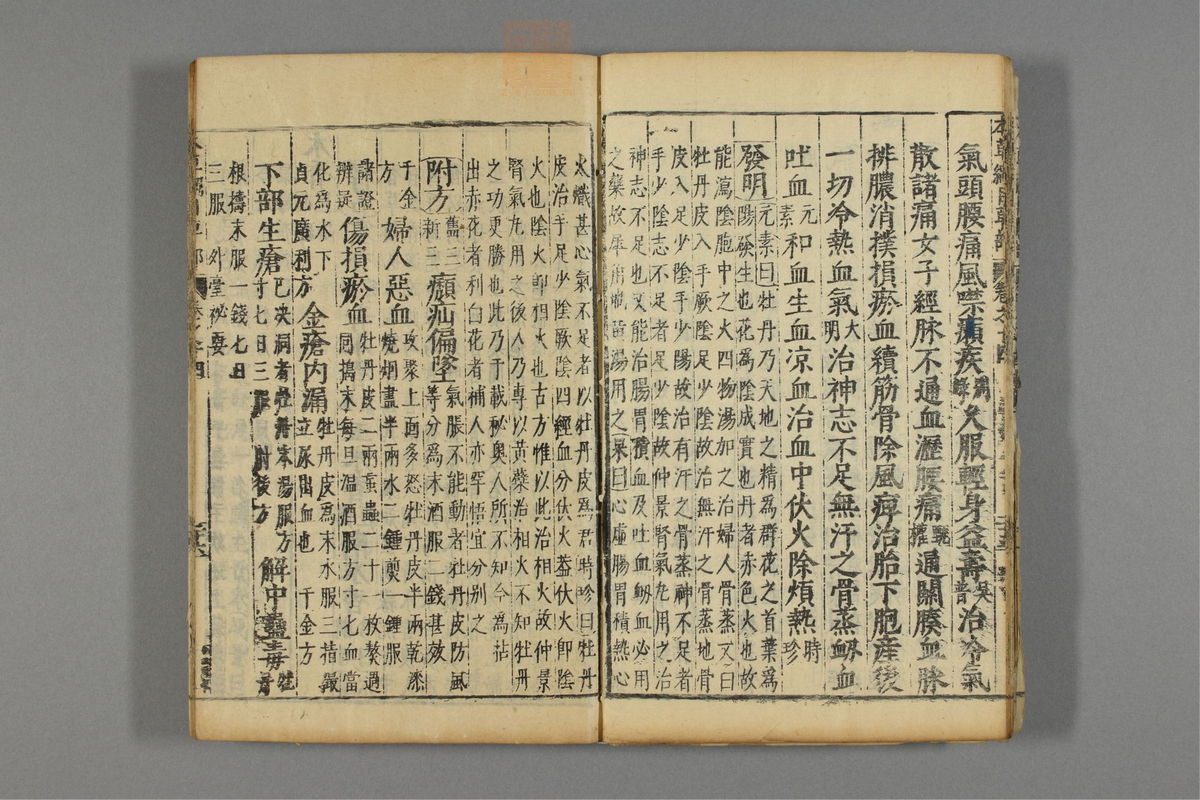 氣頭腰痛風噤癲疾別錄久服輕身益壽吳普治冷氣
散諸痛女子經脉不通血瀝腰痛甄權通關腠血脉
排膿消撲損瘀血續筋骨除風痺治胎下胞產後
一切冷熱血氣大明治神志不足無汗之骨蒸衂血
吐血元素和血生血凉血治血中伏火除煩熱時珍
發明元素曰牡丹乃天地之精爲群花之首葉爲
陽發生也花爲陰成實也丹者赤色火也故
能瀉陰胞中之火四物湯加之治婦人骨蒸又曰
牡丹皮入手厥陰足少陰故治無汗之骨蒸地骨
皮入足少陰手少陽故治有汗之骨蒸神不足者
手少陰志不足者足少陰故仲景腎氣丸用之治
神志不足也又能治腸胃積血及吐血衂血必用
之藥故犀角地黃湯用之杲曰心虛腸胃積熱心
火熾甚心氣不足者以牡丹皮爲君時珍曰牡丹
皮治手足少陰厥陰四經血分伏火葢伏火卽陰
火也陰火卽相火也古方惟以此治相火故仲景
腎氣丸用之後人乃專以黃蘗治相火不知牡丹
之功更勝也此乃千載秘奧人所不知今爲拈
出赤花者利白花者補人亦罕悟宜分别之
附方舊三新三癩疝偏墜氣脹不能動者牡丹皮防風等分爲末酒服二錢甚效
千金方婦人惡血攻聚上面多怒牡丹皮半兩乾漆燒烟盡半兩水二鍾煎一鍾服
諸證辨疑傷損瘀血牡丹皮二兩蝱蟲二十一枚熬過同搗末每旦温酒服方寸匕血當
化爲水下貞元廣利方金瘡内漏牡丹皮爲末水服三指撮立尿出血也千金方
下部生瘡已决洞者牡丹末湯服方寸匕日三服肘後方解中蠱毒牡丹
根擣末服一錢匕日
三服外臺秘要